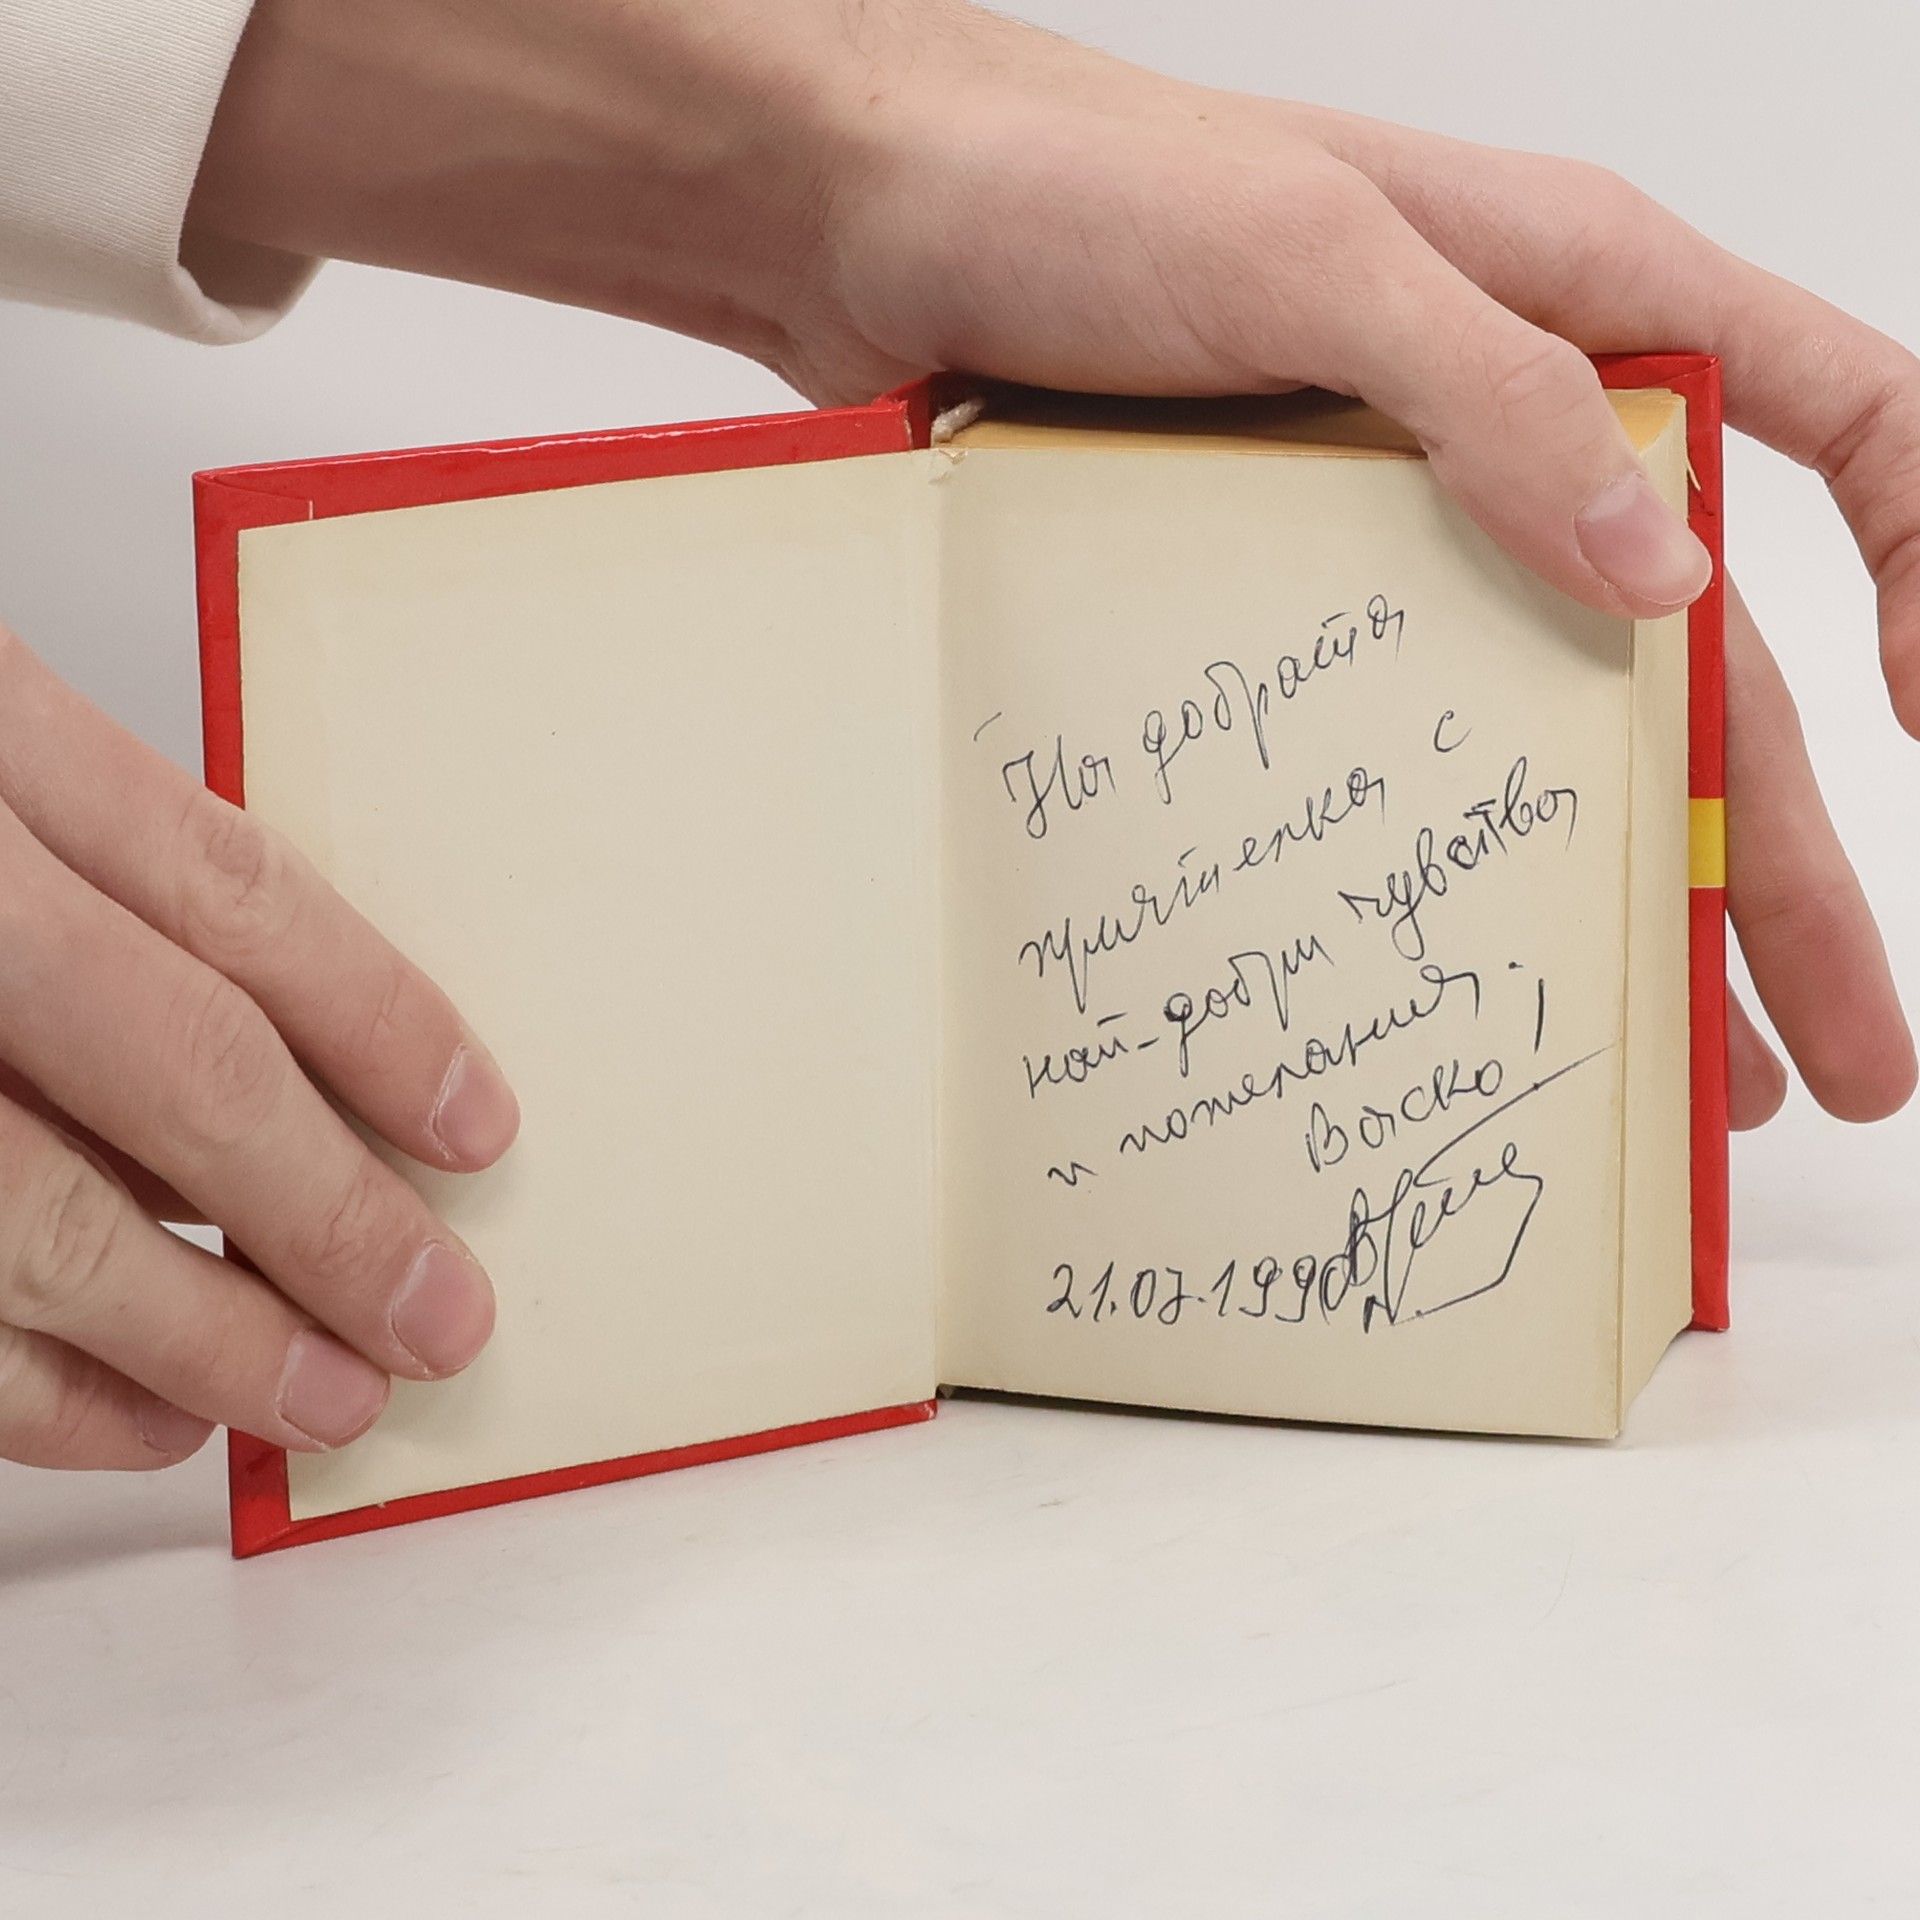 На добрата
приятелка с
най-добри чувства
и пожелания.
Васко!
21.07.1990